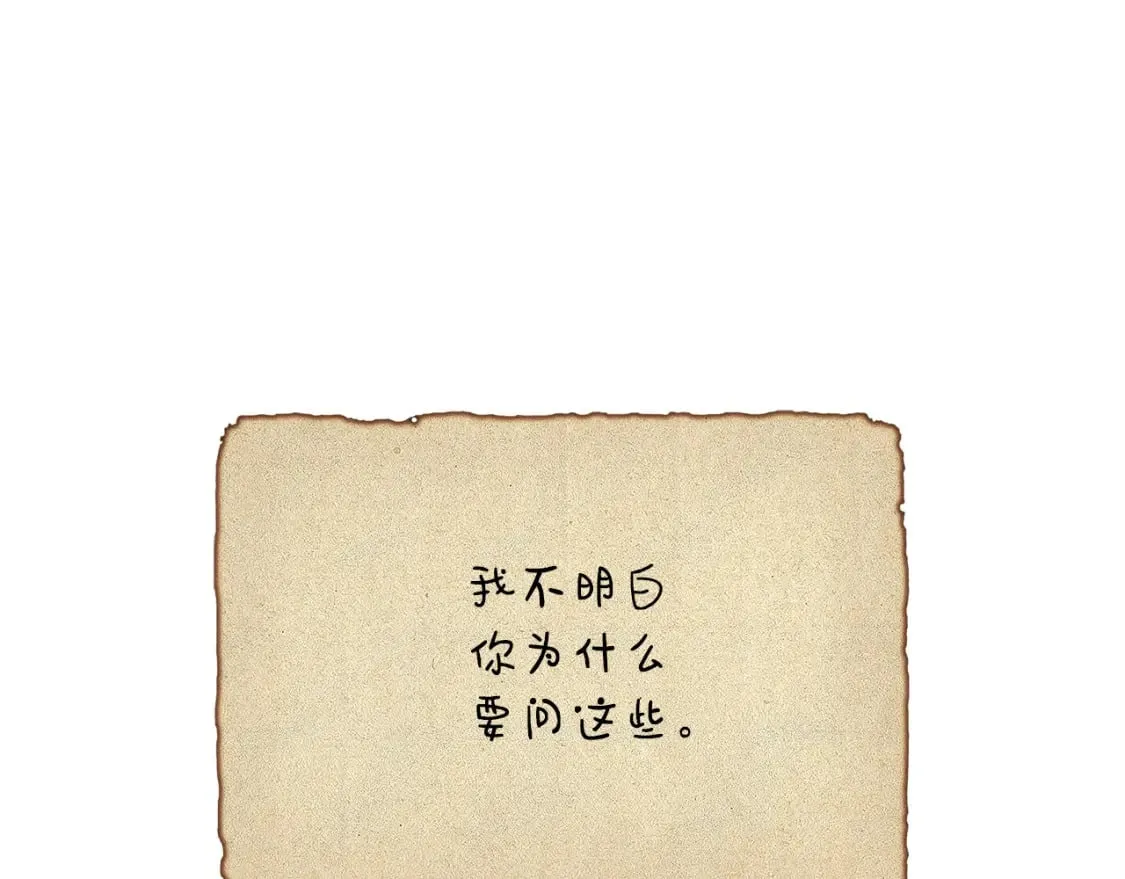 我不明白
你为什么
要问这些。